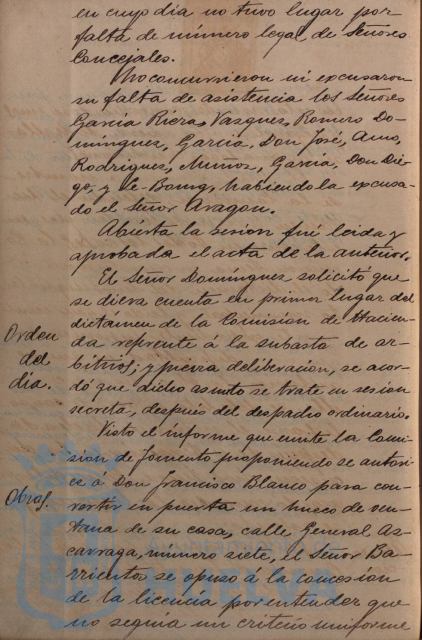 en cuyo dia no tuvo lugar por
falta de número legal de Señores
Concejales.
No concurrieron ni excusaron
su falta de asistencia los Señores
Garcia Riera, Vazquez, Romero Do-
minguez, Garcia, Don José,
Rodriguez, Muñoz, Garcia, Don Die-
go, y habiendo la excusa-
do el Señor Aragon.
Abierta la sesion fué leida y
aprobada el acta de la anterior.
El Señor Domínguez solicitó que
se diera cuenta en primer lugar del
dictámen de la Comision de Hacien-
da referente á la subasta de ar-
bitrios; y previa deliberacion, se acor-
dó que dicho asunto se trate en sesion
secreta, despues del despacho ordinario.
Orden
del
dia.
Visto el informe que emite la Comi-
sion de Fomento proponiendo se autori-
ce á Don Francisco Blanco para con-
vertir en puerta un hueco de ven-
tana de su casa, calle General Az-
carraga, número siete, el Señor Ba-
rrientos se opuso á la concesion
de la licencia por entender que
no seguia un criterio uniforme
Obras.